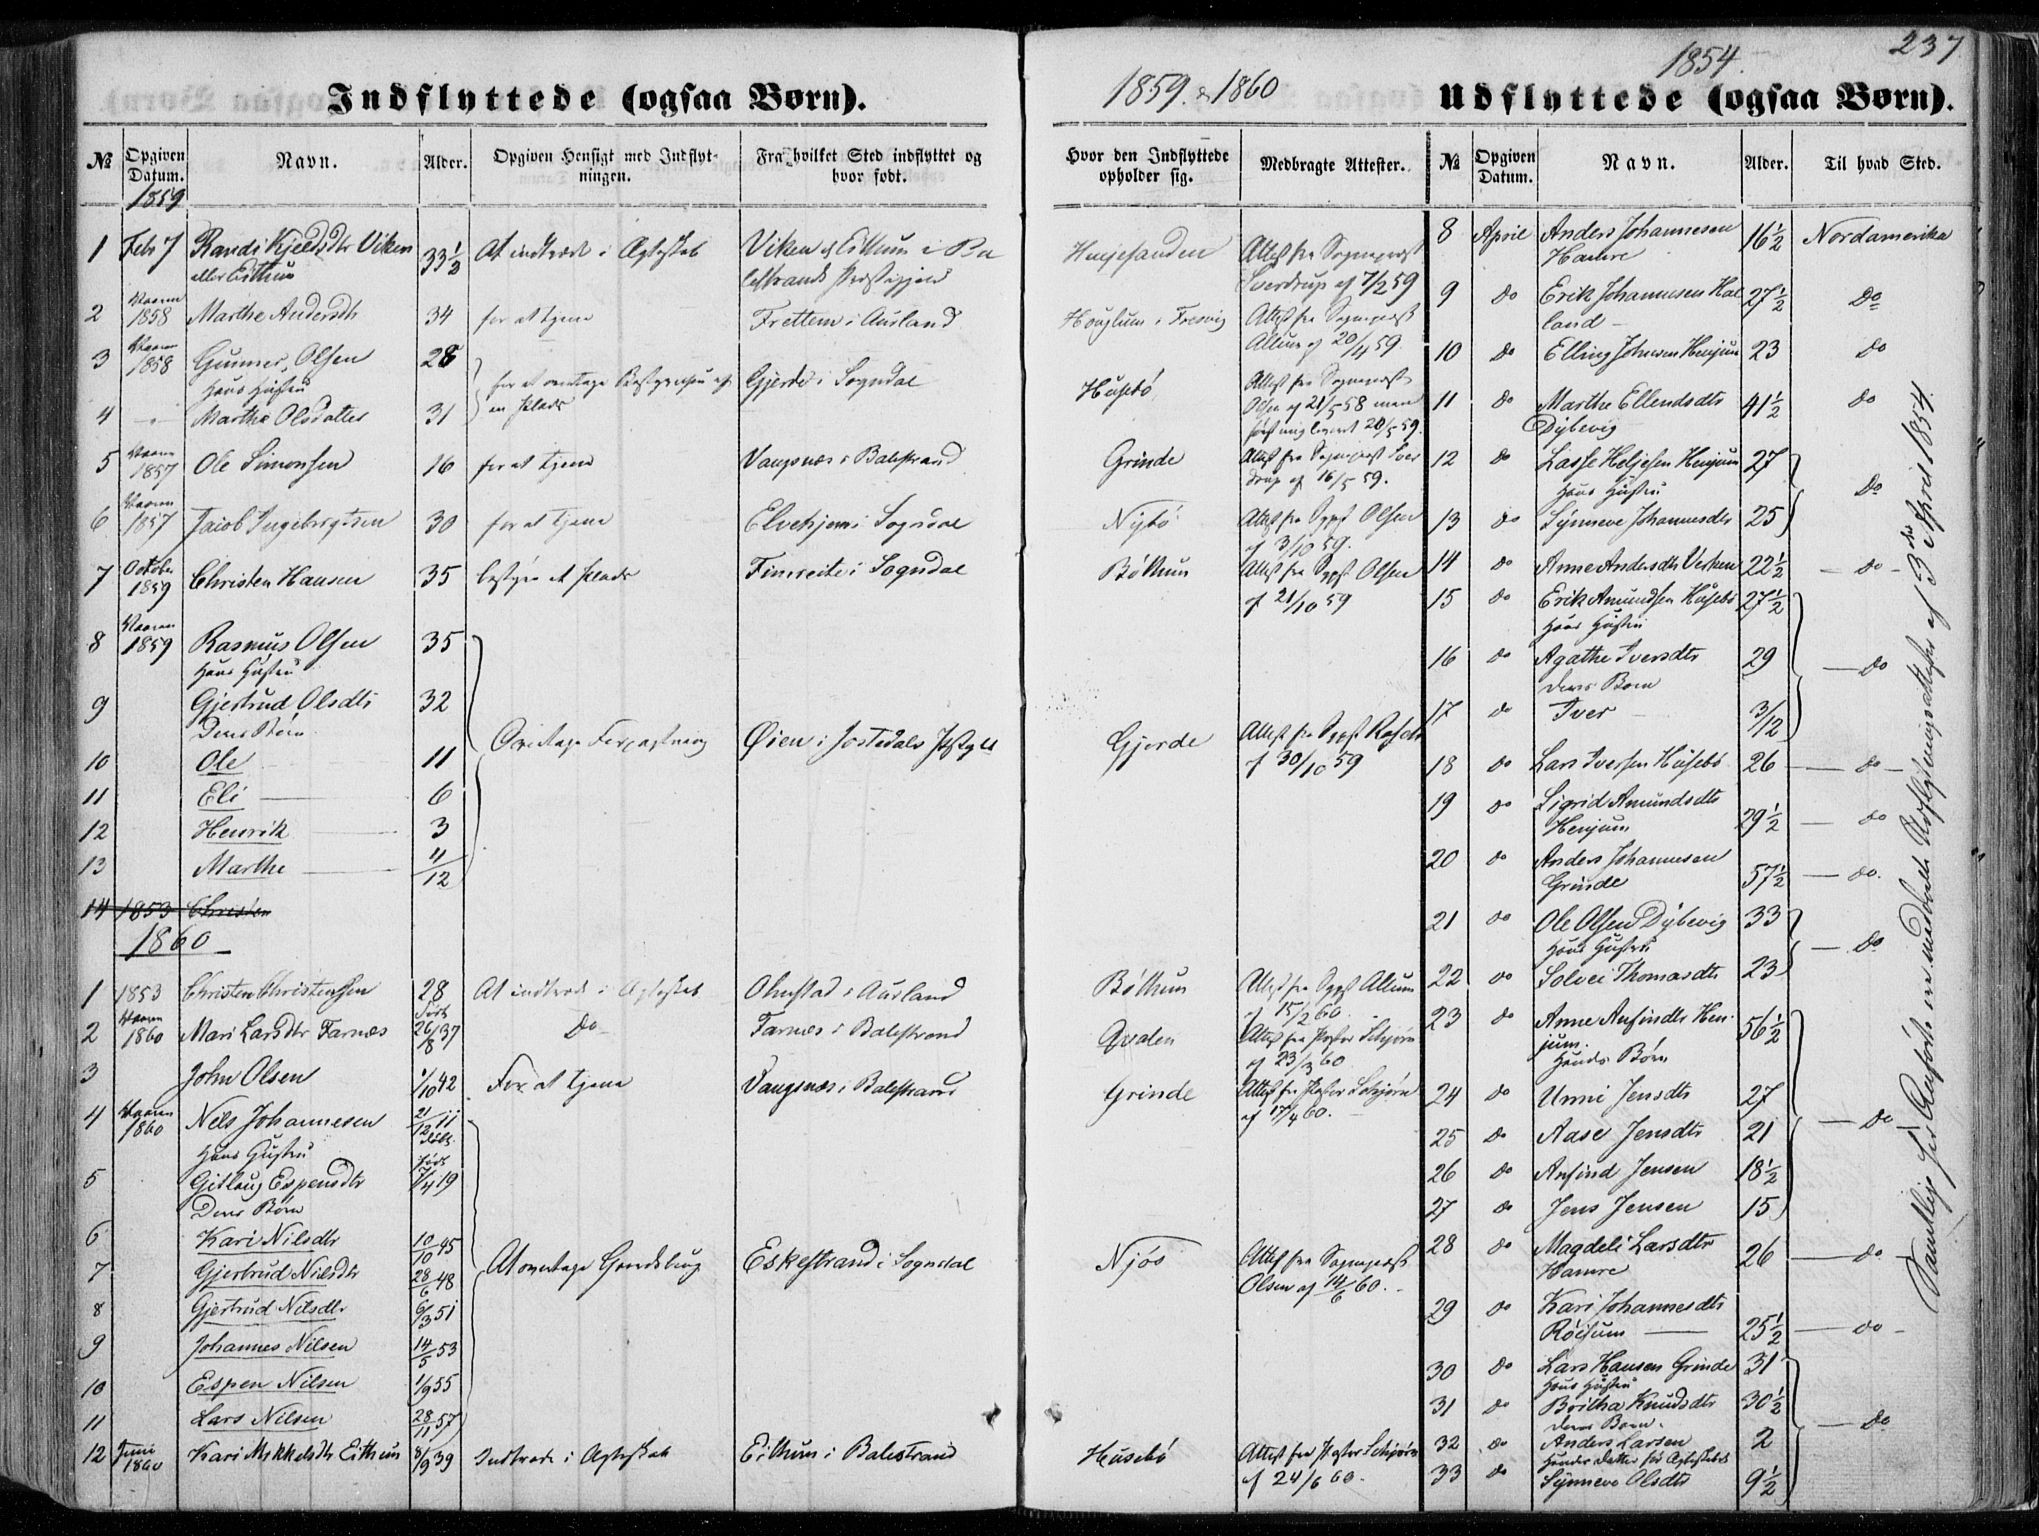 237
1854.
1859. & 1860
Indflyttede (ogsaa Børn).
Udflyttede (ogsaa Børn).
No
Opgiven Datum.
Navn.
Alder.
Opgiven Hensigt med Indflytningen.
Fra hvilket Sted indflyttet og hvor født.
Hvor den Indflyttede opholder sig.
Medbragte Attester.
1859
1 Febr 7 Randi Kjeldsdtr Viken 33½ At indtræde i Ægteskab Viken & Eithum i Ba Henjesanden Attest fra Sognepræst
eller Eithun lestrands Præstegjeld Sverdrup af 7/2 59
2 Vaaren 1858 Marthe Andersdtr 34 for at tjene Frettem i Aurland Houglum i Fresvig Attest fra Sognepræst
af 20/4 59.
3 Vaaren 1858 Gunner Olsen 28 for at overtage en Plads Gjerde i Sogndal Husebø Attest fra Sognepræst
Hans Hustru Olsen af 21/5 58 men
4 Marthe Olsdatter 31 først mig leveret 20/5 59.
5 Vaaren 1857 Ole Simonsen 16 for at tjene Vangsnæs i Balestrand Grinde Attest fra Sognepræst Sver
drup af 16/5 59.
6 Vaaren 1857 Jacob Ingebrigtsen 30 for at tjene Elvekjem i Sogndal Nybø Attest fra Sgpst Olsen
af 3/10 59.
7 October 1859 Christen Hansen 35 bestyre et Plads Fimreite i Sogndal Bøthun Attest fra Sgpst Olsen
af 21/10 59
8 Vaaren 1859 Rasmus Olsen 35
Hans Hustru
9 Gjertrud Olsdtr 32
Deres Børn
Overtage Forpagtning Øien i Jostedals Pstgjeld Gjerde Attest fra Sgpst
af 30/10 59
10 Ole 11
11 Eli 6
12 Henrik 3
13 Marthe 4/12
14 1853 Christen
1860
1 1853 Christen Christensen 28 At indtræde i Ægteskab Ohnstad i Aurland Bøthun Attest fra Sgpst
15/2 60
2 Vaaren 1860 Mari Larsdtr Farnæs Født 26/8 37 Do Farnæs i Balestrand Qvalen Attest fra Pastor
af 23/3 60
3 John Olsen 1/10 42 For at tjene Vangsnæs i Balestrand Grinde Attest fra Pastor
af 17/4 60.
4 Vaaren 1860 Nels Johannesen 21/12 11 døbt
Hans Hustru
5 Gitlaug Espensdtr født 5/4 19
Deres Børn
6 Kari Nilsdtr 10/10 45
At overtage Gaardsbrug Eskestrand i Sogndal Njøs Attest fra Sognepræst
Olsen af 14/6 60.
7 Gjertrud Nielsdtr 28/6 48
8 Gjertrud Nilsdtr 6/3 51
9 Johannes Nilsen 14/5 53
10 Espen Nilsen 1/9 55
11 Lars Nilsen 28/11 57
12 Juni 1860 Kari Mikkelsdtr Eithun 8/9 39 Indtræde i Ægteskab Eithun i Balestrand Husebø Attest fra Pastor
af 24/6 60.
No
Opgiven Datum.
Navn.
Alder.
Til hvad Sted.
8 April Anders Johannesen 16½ Nordamerika
Hamre
9 do Erik Johannesen Hal 27½ Do
land
10 do Elling Johnsen Henjum 23 Do
11 do Marthe Ellendsdtr 41½ do
Dybevig
12 do Lasse Heljesen Henjum 27
Hans Hustru Do
13 do Synneve Johannesdtr 25
14 do Anne Andersdtr 22½ do
15 do Erik Amundsen Husebø 27½
Hans Hustru
16 do Agathe Iversdtr 29 do
deres Barn
17 do Iver 3/12
18 do Lars Iversen Husebø 26 do
19 do Sigrid Amundsdtr
Henjum 29½ do
20 do Anders Johannesen
Grinde 57½ do.
21 do Ole Olsen Dybevig 33
Hans Hustru Do
22 do Solvei Thomasdtr 23
23 do Anne Anfindtr Hen- 56½
jum.
Hendes Børn
24 do Unni Jensdtr 27
25 do Aase Jensdtr 21 Do
26 do Anfind Jensen 18½
27 do Jens Jensen 15
28 do Magdeli Larsdtr
Hamre 26 do
29 do Kari Johannesdtr
Røisum 25½ do
30 do Lars Hansen Grinde 31
Hans Hustru
31 do Britha Knudsdtr 30½
deres Barn. Do
32 do Anders Larsen 2
Hendes datter før Ægteskabet
33 do Synneve Olsdtr 9½
Samtlige her Anførte ere meddeelte Udflytningsattester af 3die April 1854.